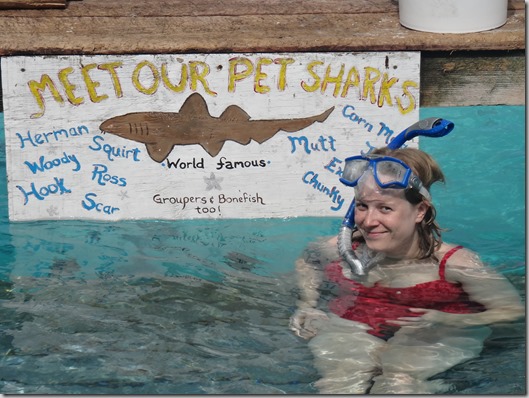 MEET OUR PET SHARKS
Herman
Squirt
Woody
Ross
Hook
Scar
World famous
Groupers & Bonefish
too!
Corn
Mutt
Chunky